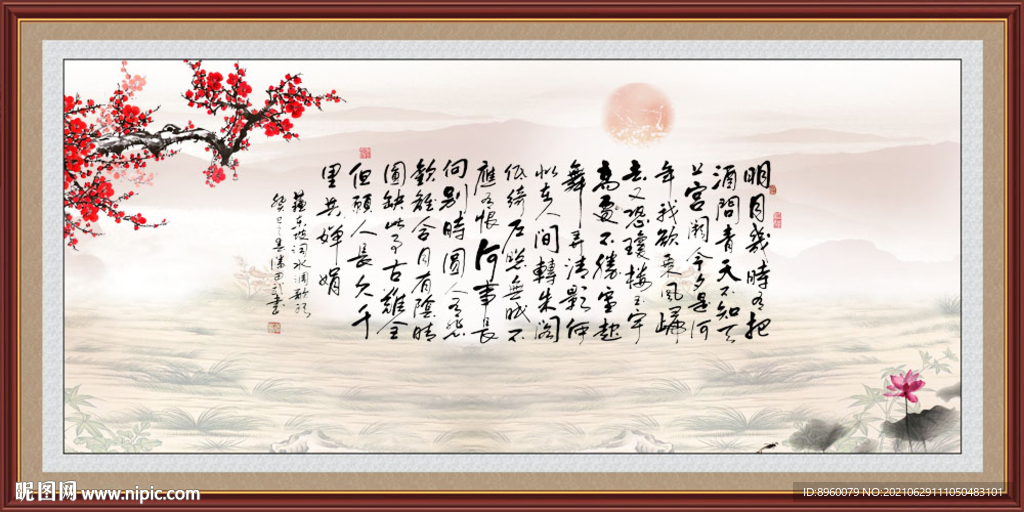 明月幾時有把
酒問青天不知天
上宮闕今夕是何
年我欲乘風歸
去又恐瓊樓玉宇
高處不勝寒起
舞弄清影何
似在人間轉朱閣
低綺戶照無眠不
應有恨何事長
向別時圓人有悲
歡離合月有陰晴
圓缺此事古難全
但願人長久千
里共嬋娟
蘇東坡詞水調歌頭
昵图网 www.nipic.com
ID:8960079 NO:20210629111050483101